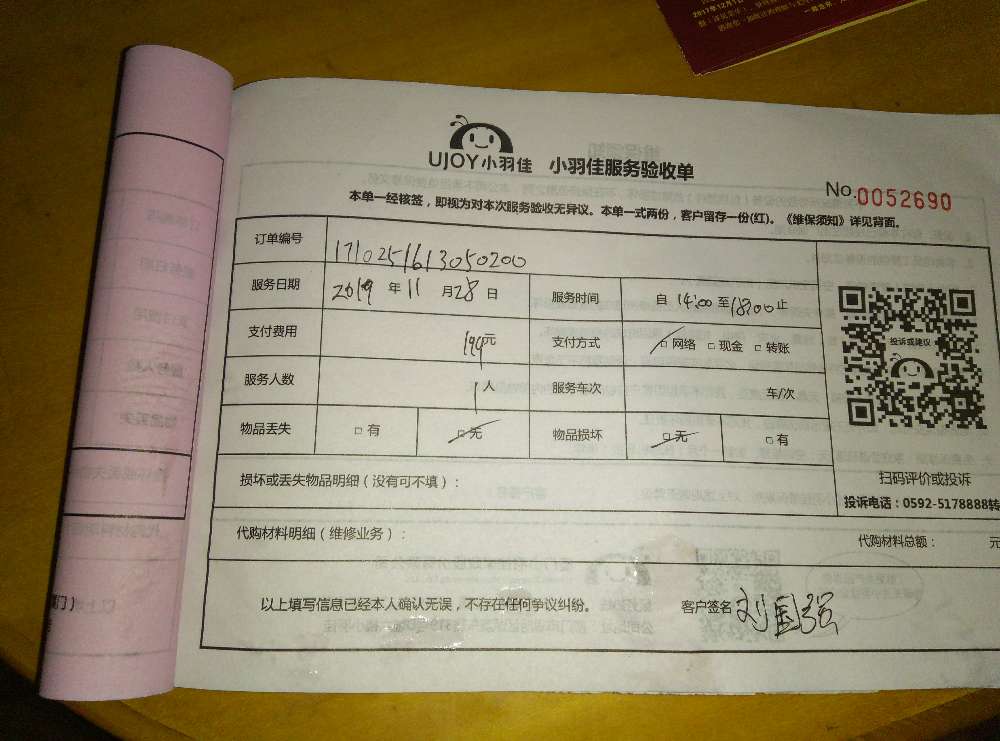 2017年12月1
UJOY小羽佳 小羽佳服务验收单
No.0052690
本单一经核签，即视为对本次服务验收无异议。本单一式两份，客户留存一份(红)。《维保须知》详见背面。
订单编号 1710251613050200
服务日期 2019 年 11 月 28 日 服务时间 自 14:00 至 18:00 止
支付费用 199元 支付方式 □ 网络 □ 现金 □ 转账
服务人数 1 人 服务车次 车/次
物品丢失 □ 有 □ 无 物品损坏 □ 无 □ 有
投诉或建议
扫码评价或投诉
投诉电话：0592-5178888转
损坏或丢失物品明细（没有可不填）：
代购材料明细（维修业务）： 代购材料总额： 元
以上填写信息已经本人确认无误，不存在任何争议纠纷。 客户签名 刘国强
门）